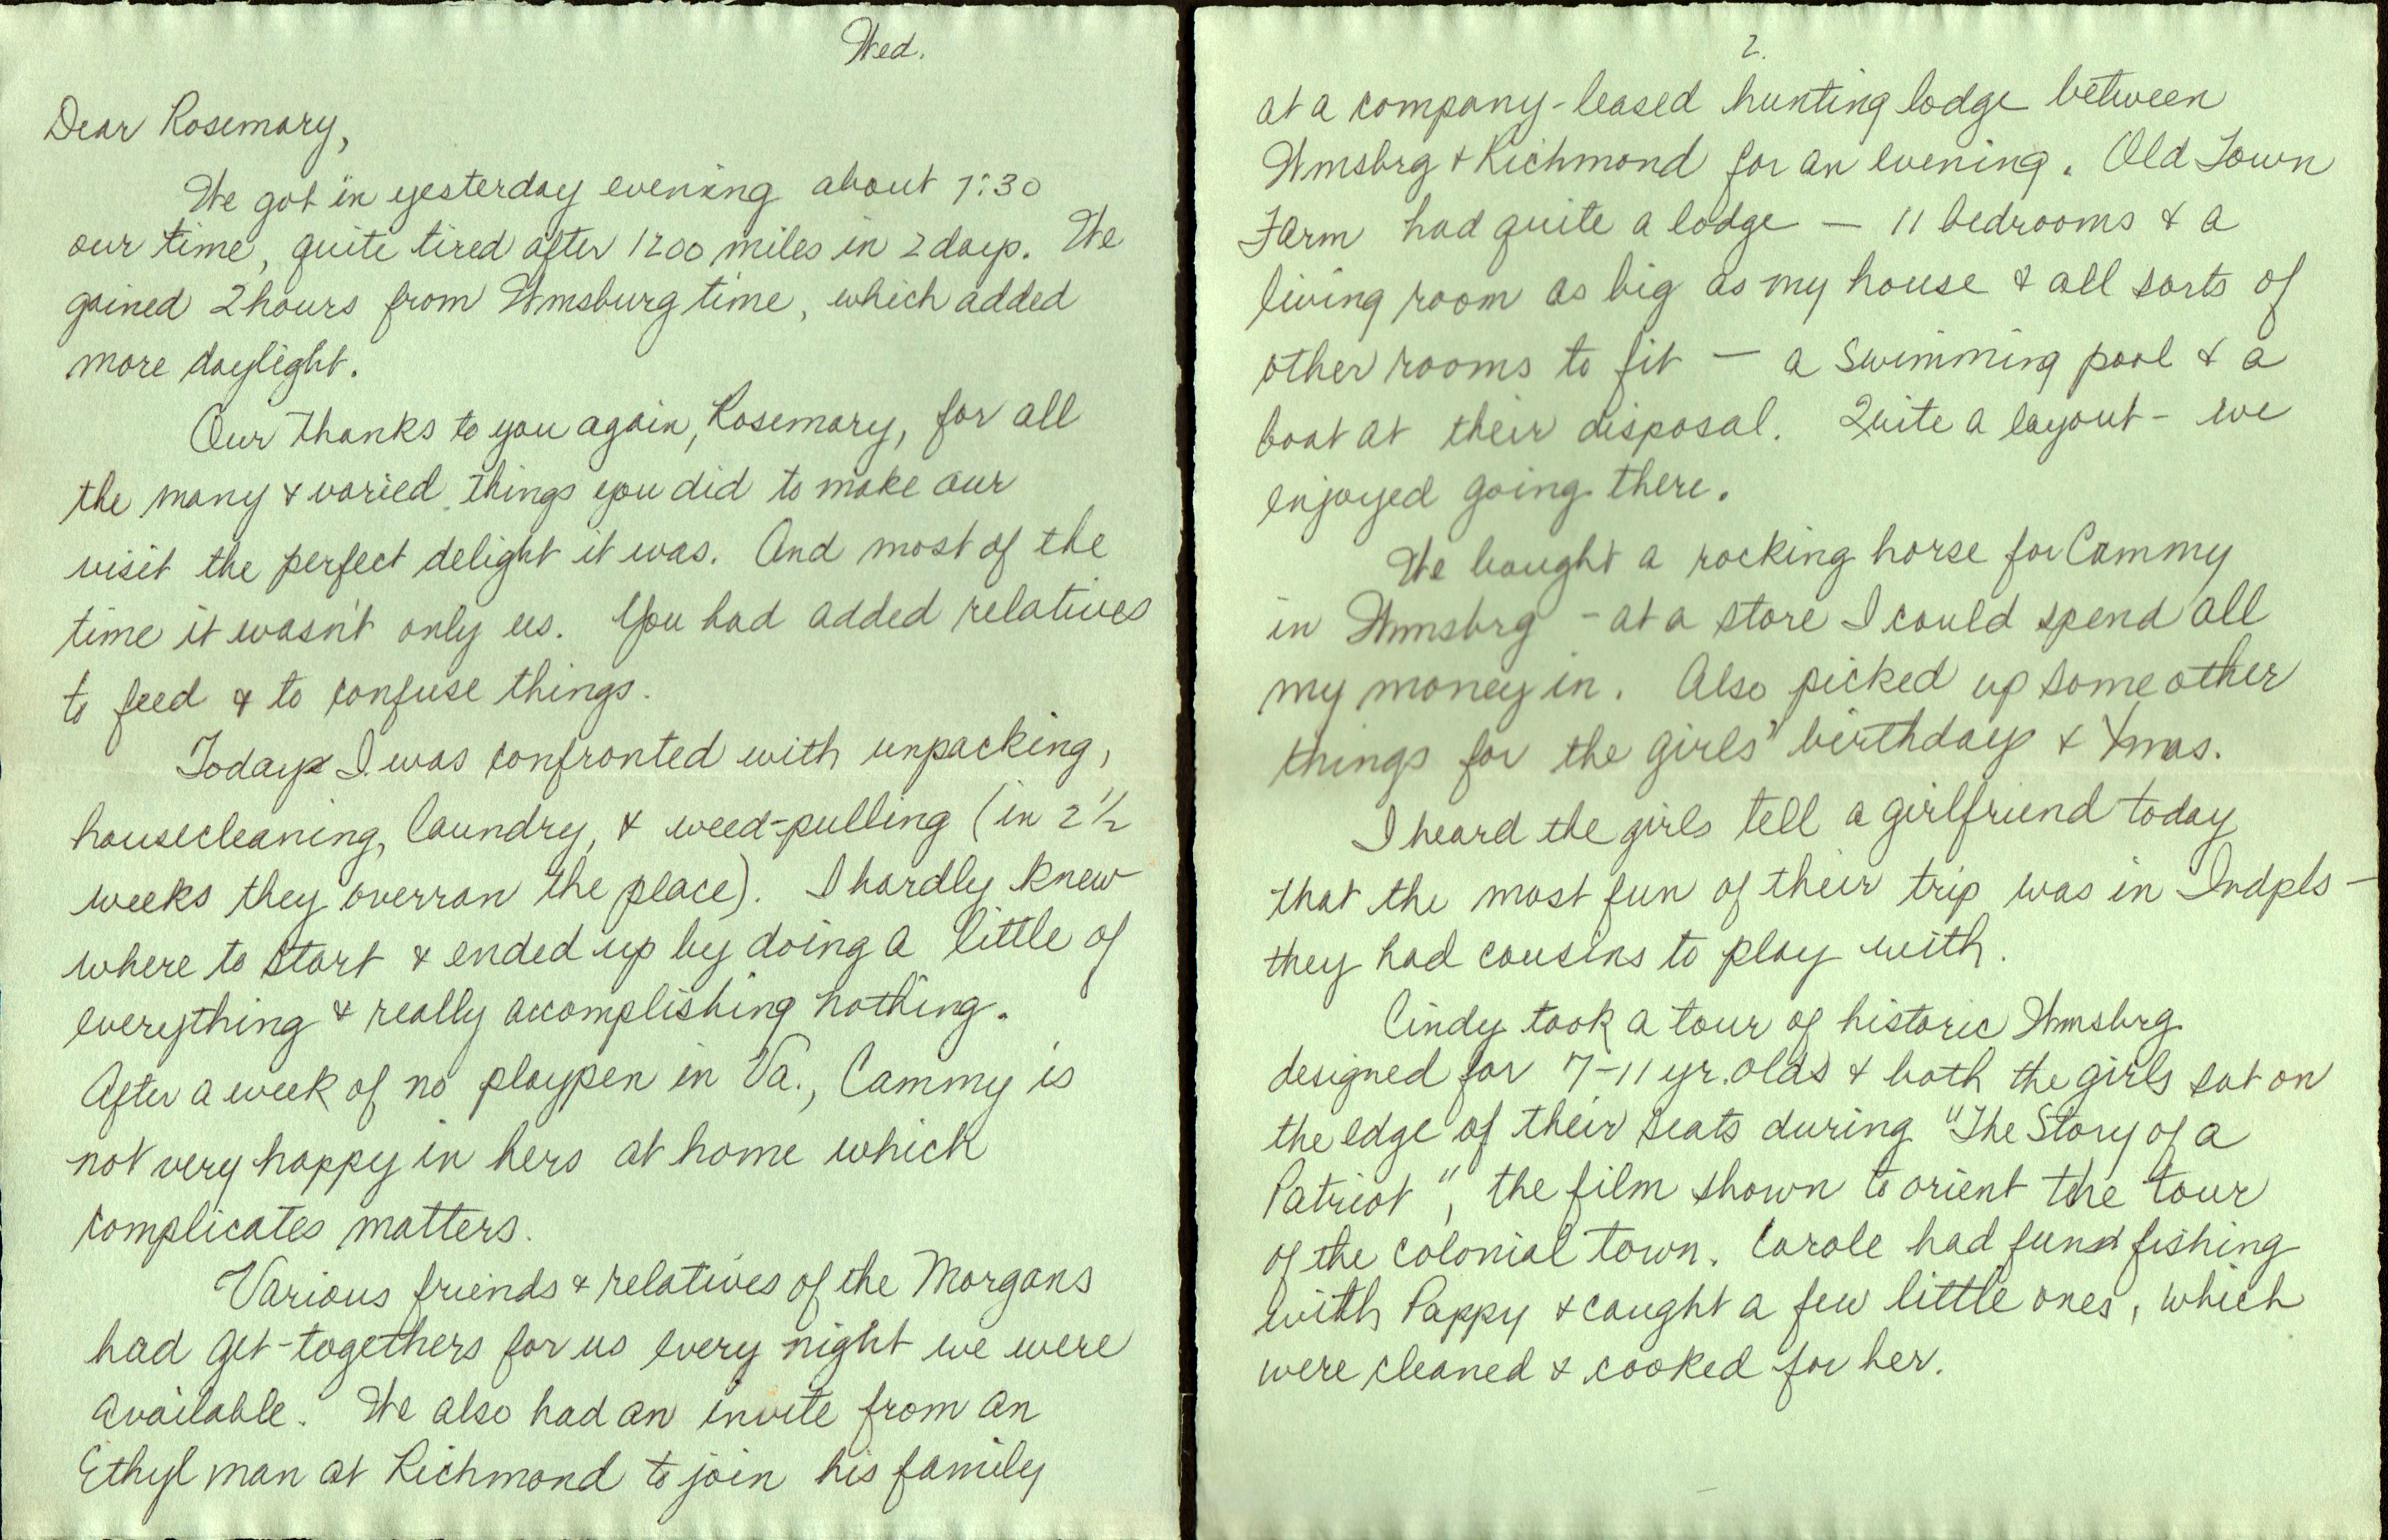 Wed.
Dear Rosemary,
We got in yesterday evening about 7:30
our time, quite tired after 1200 miles in 2 days. We
gained 2 hours from Wmsburg time, which added
more daylight.
Our thanks to you again, Rosemary, for all
the many & varied things you did to make our
visit the perfect delight it was. And most of the
time it wasn't only us. You had added relatives
to feed & to confuse things.
Today I was confronted with unpacking,
housecleaning, laundry, & weed-pulling (in 2 1/2
weeks they overran the place). I hardly knew
where to start & ended up by doing a little of
everything & really accomplishing nothing.
After a week of no playpen in Va., Cammy is
not very happy in hers at home which
complicates matters.
Various friends & relatives of the Morgans
had get-togethers for us every night we were
available. We also had an invite from an
Ethyl man at Richmond to join his family
2.
at a company-leased hunting lodge between
Wmsbrg & Richmond for an evening. Old Town
Farm had quite a lodge — 11 bedrooms & a
living room as big as my house & all sorts of
other rooms to fit — a swimming pool & a
boat at their disposal. Quite a layout - we
enjoyed going there.
We bought a rocking horse for Cammy
in Wmsbrg - at a store I could spend all
my money in. Also picked up some other
things for the girls' birthdays & Xmas.
I heard the girls tell a girlfriend today
that the most fun of their trip was in Indpls —
they had cousins to play with.
Cindy took a tour of historic Wmsbrg.
designed for 7-11 yr. olds & both the girls sat on
the edge of their seats during "The Story of a
Patriot", the film shown to orient the tour
of the colonial town. Carole had fun fishing
with Pappy & caught a few little ones, which
were cleaned & cooked for her.